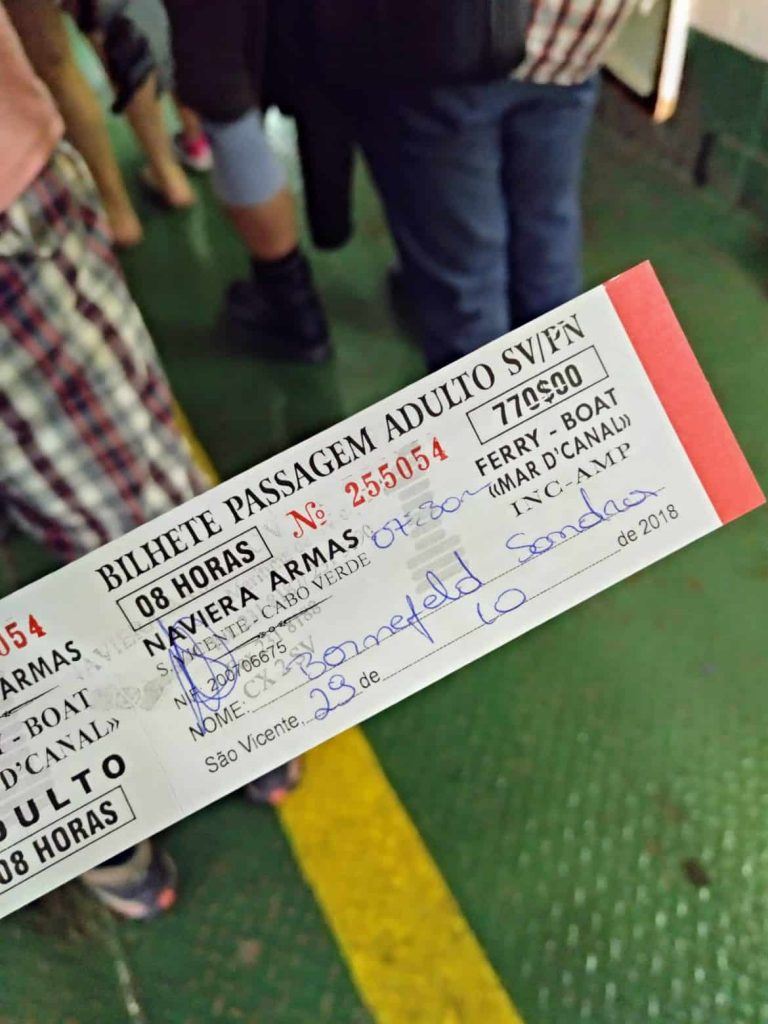 BILHETE PASSAGEM ADULTO SV/PN
08 HORAS Nº 255054 770$00
NAVIERA ARMAS 07:30 FERRY - BOAT
S. VICENTE - CABO VERDE «MAR D'CANAL»
NIF. 200706675 INC-AMP
NOME: Bornefeld Sandra
São Vicente, 29 de 10 de 2018
054
ARMAS
- BOAT
D'CANAL»
DULTO
08 HORAS